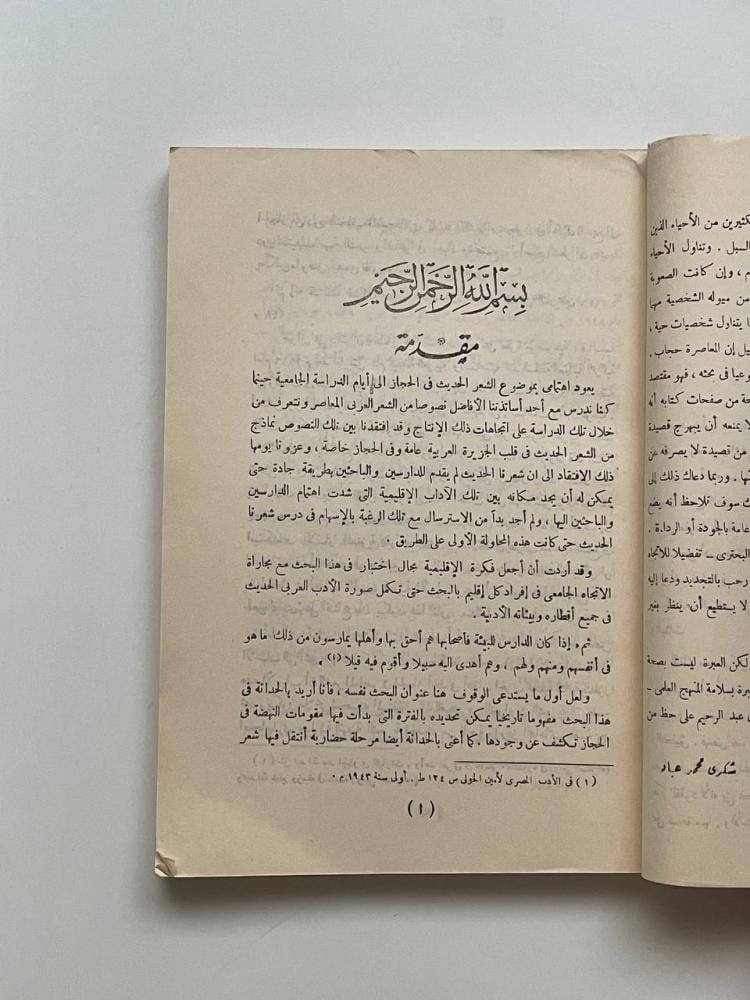 بسم الله الرحمن الرحيم
مقدمة
يعود اهتمامى بموضوع الشعر الحديث فى الحجاز الى أيام الدراسة الجامعية حينما
كنا ندرس مع أحد أساتذتنا الأفاضل نصوصا من الشعر العربى المعاصر ونتعرف من
خلال تلك الدراسة على اتجاهات ذلك الإنتاج وقد افتقدنا بين تلك النصوص نماذج
من الشعر الحديث فى قلب الجزيرة العربية عامة وفى الحجاز خاصة ، وعزونا يومها
ذلك الافتقاد الى ان شعرنا الحديث لم يقدم للدارسين والباحثين بطريقة جادة حتى
يمكن له أن يجد مكانه بين تلك الآداب الإقليمية التى شدت اهتمام الدارسين
والباحثين اليها ، ولم أجد بدا من الاسترسال مع تلك الرغبة بالإسهام فى درس شعرنا
الحديث حتى كانت هذه المحاولة الأولى على الطريق .
وقد أردت أن أجعل فكرة الإقليمية مجال اختبار فى هذا البحث مع مجاراة
الاتجاه الجامعى فى إفراد كل إقليم بالبحث حتى تكمل صورة الأدب العربى الحديث
فى جميع أقطاره وبيئاته الأدبية .
ثم ، إذا كان الدارس للبيئة فأصحابها هم أحق بها وأهلها يمارسون من ذلك ما هو
فى أنفسهم ومنهم ولهم ، وهم أهدى اليه سبيلا وأقوم فيه قيلا (١) .
ولعل أول ما يستدعى الوقوف هنا عنوان البحث نفسه ، فأنا أريد بالحداثة فى
هذا البحث مفهوما تاريخيا يمكن تحديده بالفترة التى بدأت فيها مقومات النهضة فى
الحجاز تكشف عن وجودها . كما أعنى بالحداثة أيضا مرحلة حضارية أنتقل فيها شعر
(١) فى الأدب المصرى لأمين الخولى س ١٣٤ ط . أولى سنة ١٩٤٣ م .
(١)
كثيرين من الأحياء الذين
السبل . وتناول الأحياء
م ، وإن كانت الصعوبة
من ميوله الشخصية مهما
ا يتناول شخصيات حية ،
يل إن المعاصرة حجاب .
وعيا فى بحثه ، فهو مقتصد
حة من صفحات كتابه أنه
لا يمنعه أن يبهرج قصيدة
من قصيدة لا يصرفه عن
ها . وربما دعاك ذلك إلى
ك سوف تلاحظ أنه يضع
عامة بالجودة أو الرداءة .
البحترى – تفضيلا للاتجاه
رحب بالتجديد ودعا إليه
لا يستطيع أن ينظر بغير
لكن العبرة ليست بصحة
برة بسلامة المنهج العلمى –
عبد الرحيم على حظ من
شكرى محمد عياد